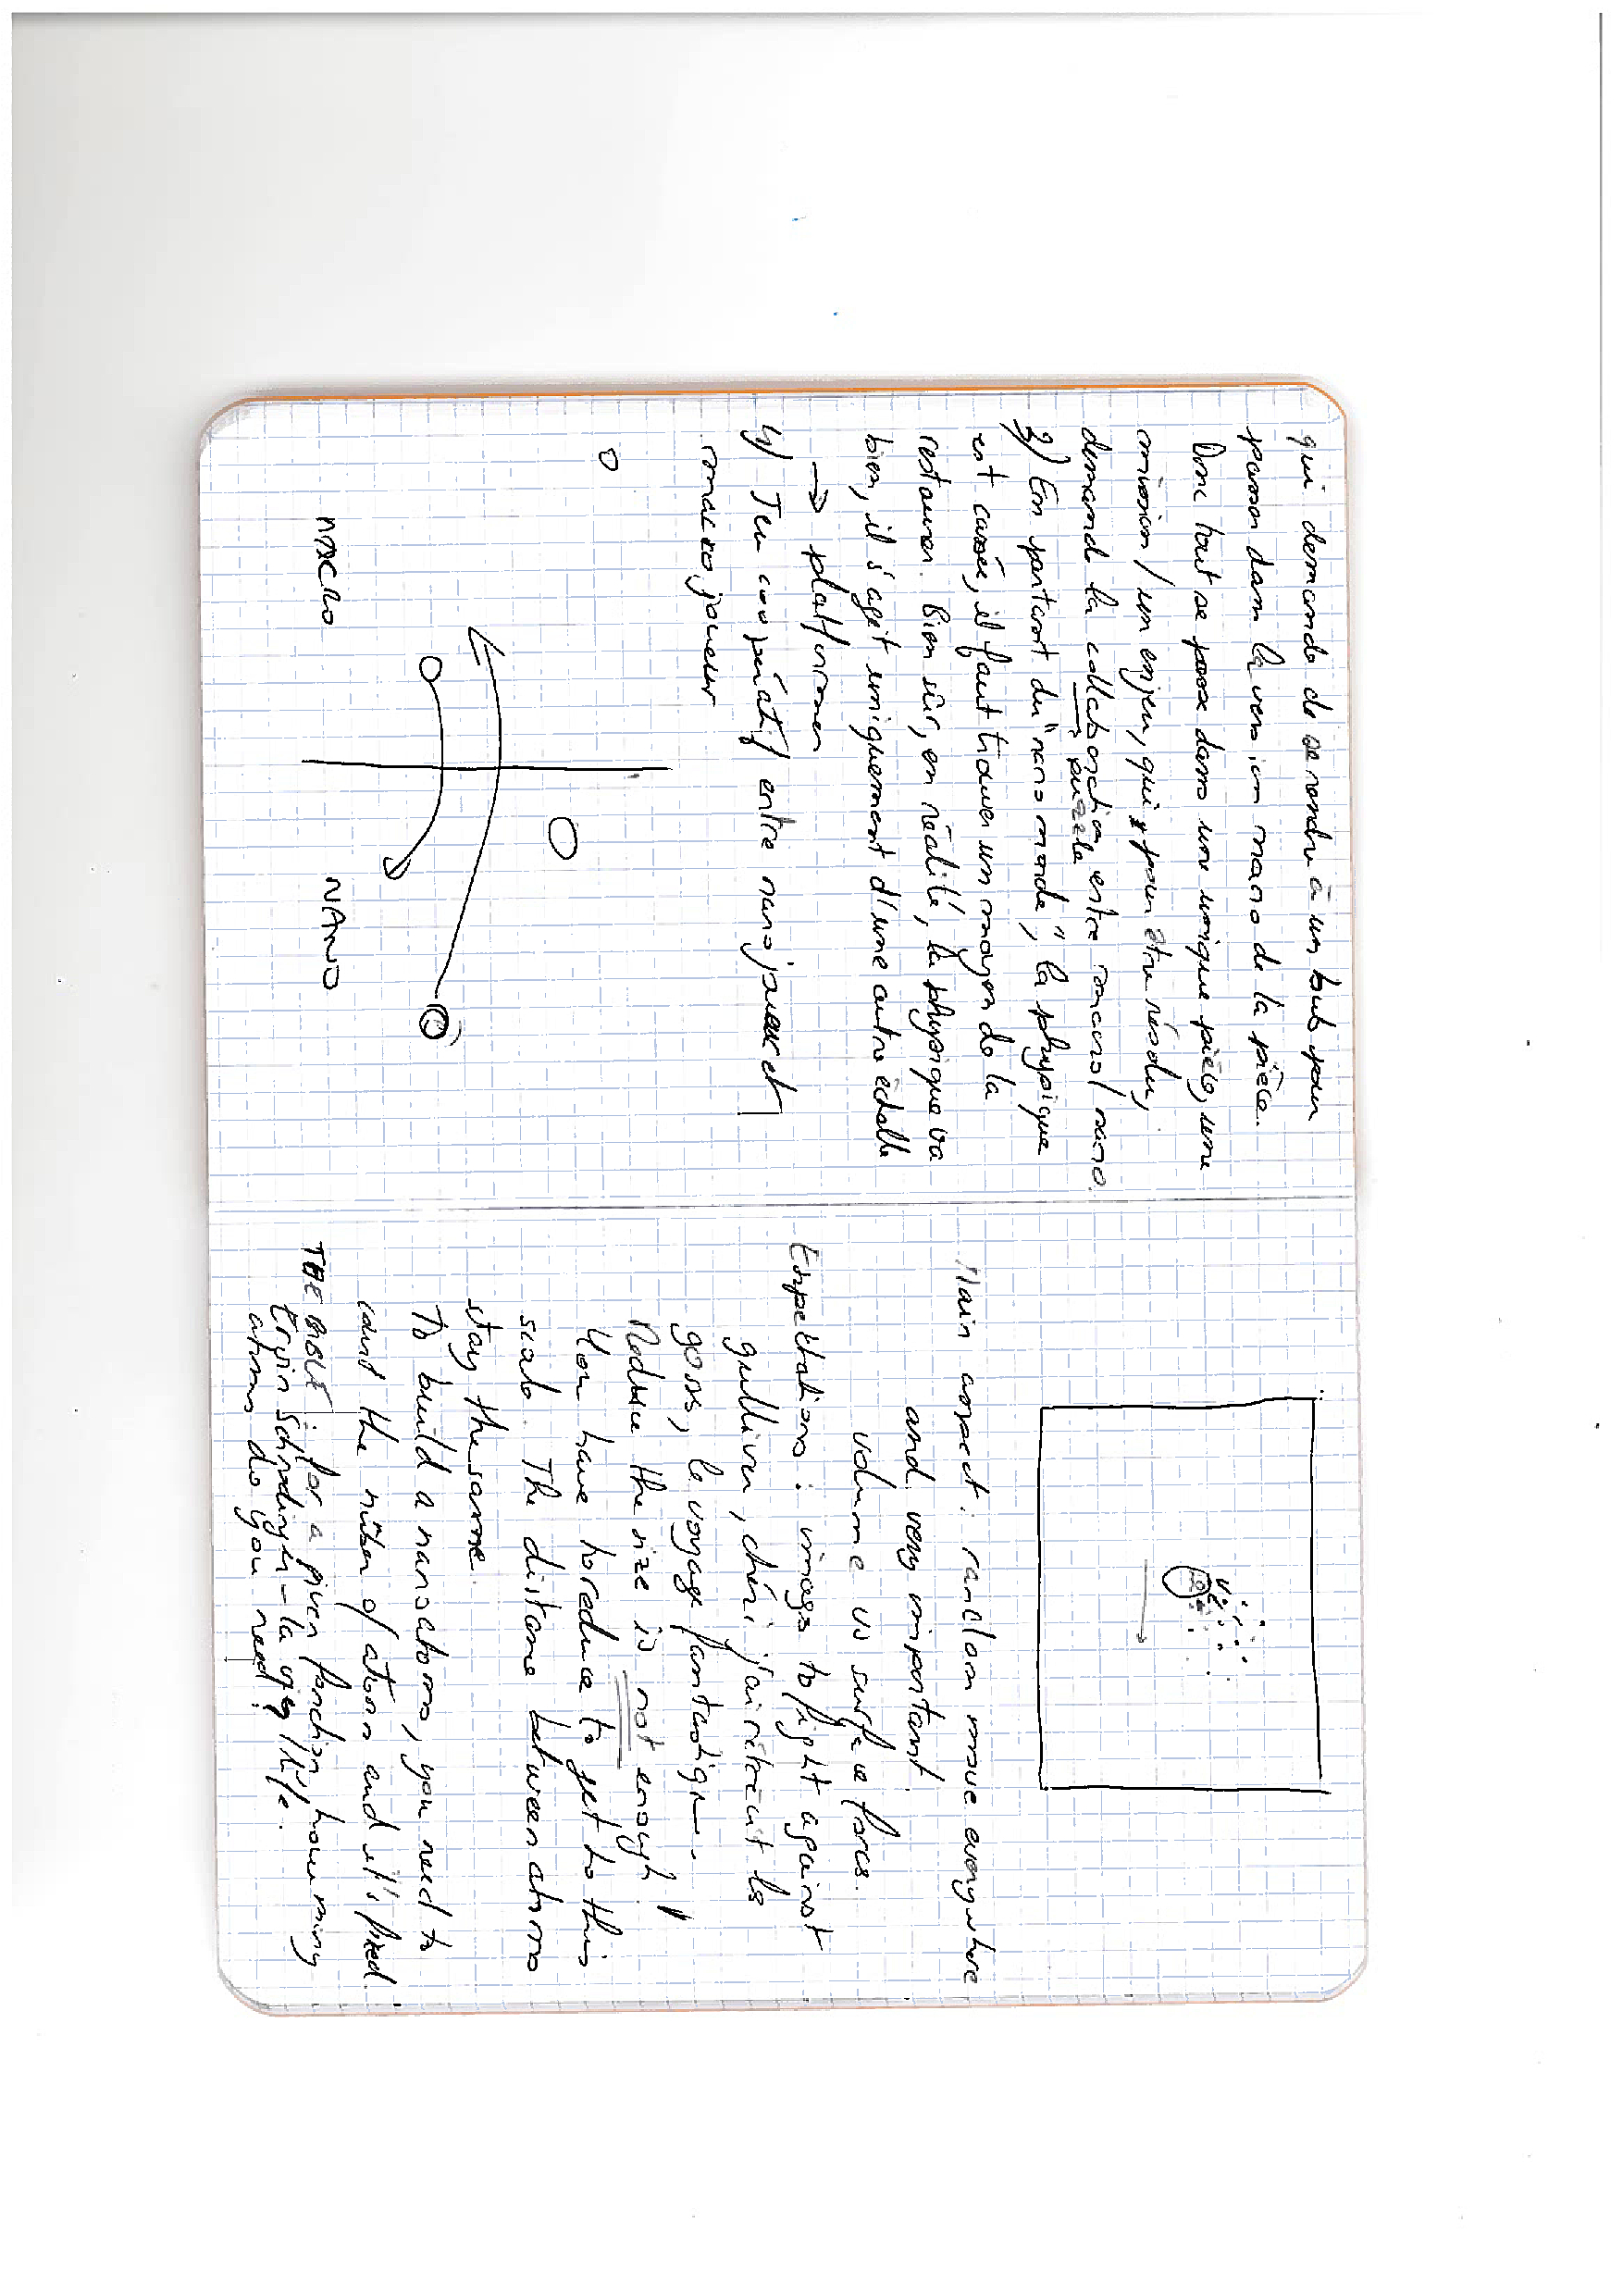 qui demande de se rendre à un but pour
passer dans la version nano de la pièce.
Donc tout se passe dans une unique pièce, une
mission / un enjeu, qui, pour être résolu,
demande la collaboration entre macro/nano.
puzzle
3) En partant du "nano monde", la physique
est cassée, il faut trouver un moyen de la
restaurer. Bien sûr, en réalité, la physique va
bien, il s'agit uniquement d'une autre échelle
→ platformer
4) Jeu coopératif entre nano joueur et
macro joueur
MACRO NANO
Main aspect: random move everywhere
and very important.
volume vs surface forces.
Expectations: image to fight against
gulliver, chéri j'ai rétréci les
goss, le voyage fantastique.
Reduce the size is not enough!
You have to reduce to get to this
scale. The distance between atoms
stay the same.
To build a nanoatoms, you need to
count the number of atoms and it's fixed.
THE BIBLE: for a given function, how many
Erwin Schrodinger - la vie / life.
atoms do you need?